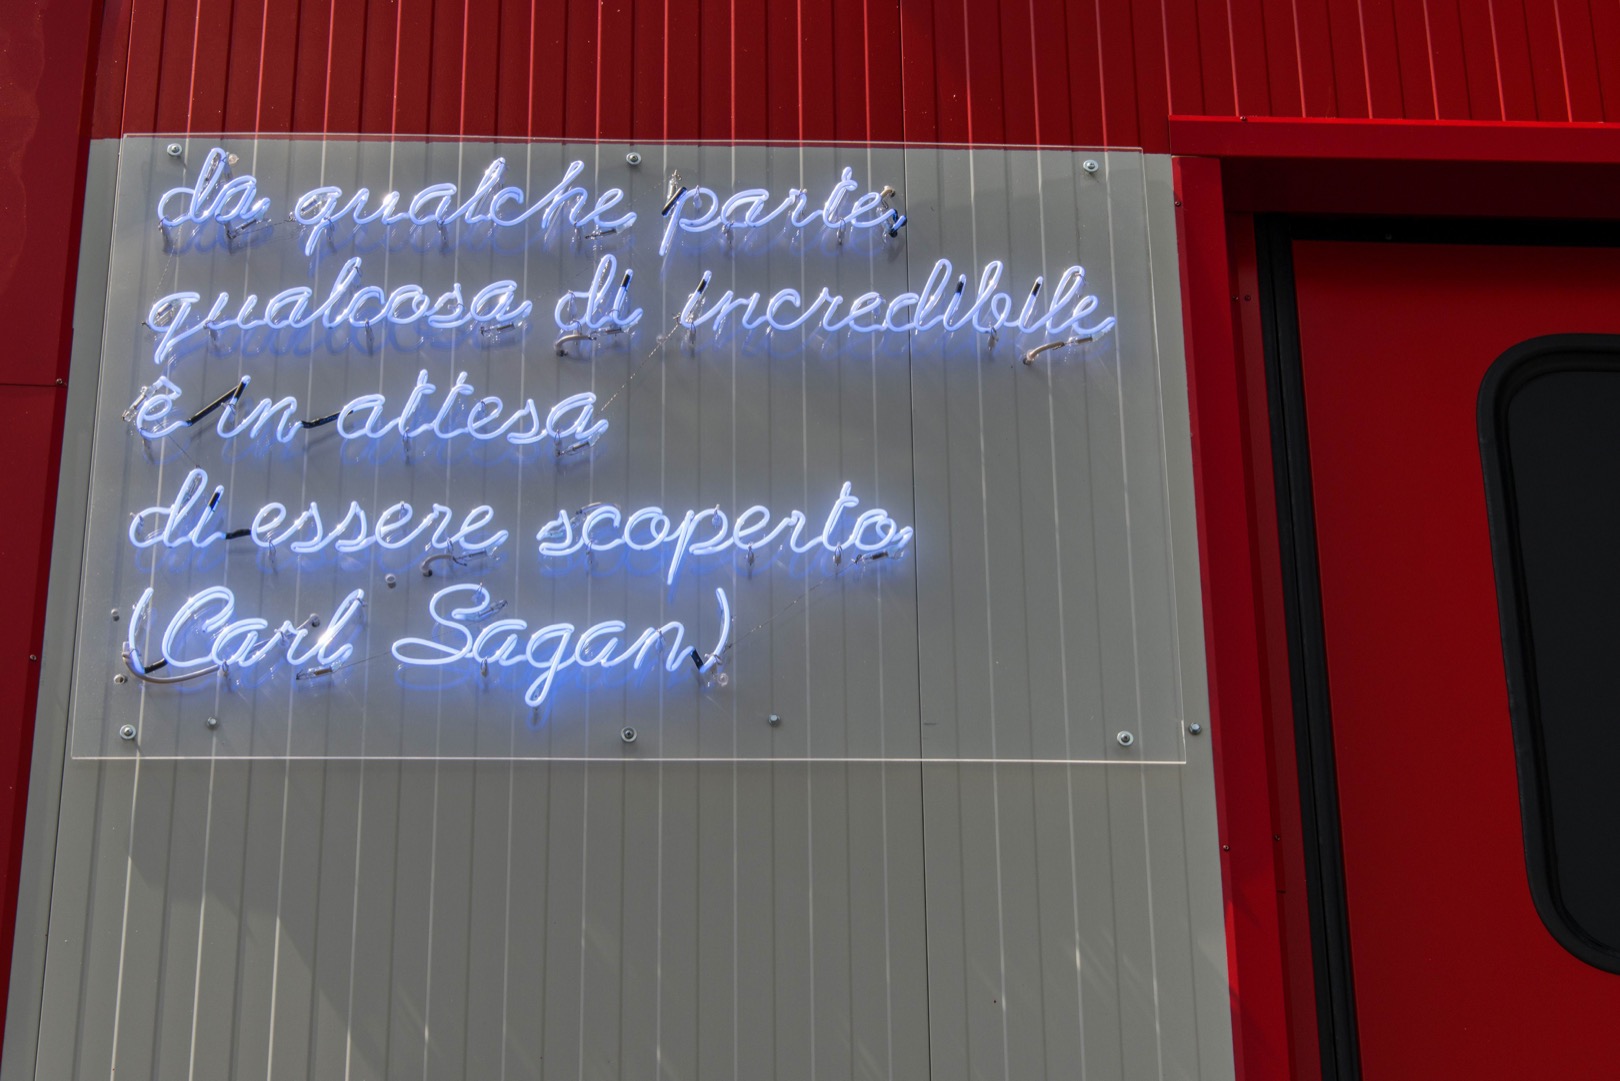 da qualche parte
qualcosa di incredibile
è in attesa
di essere scoperto
(Carl Sagan)